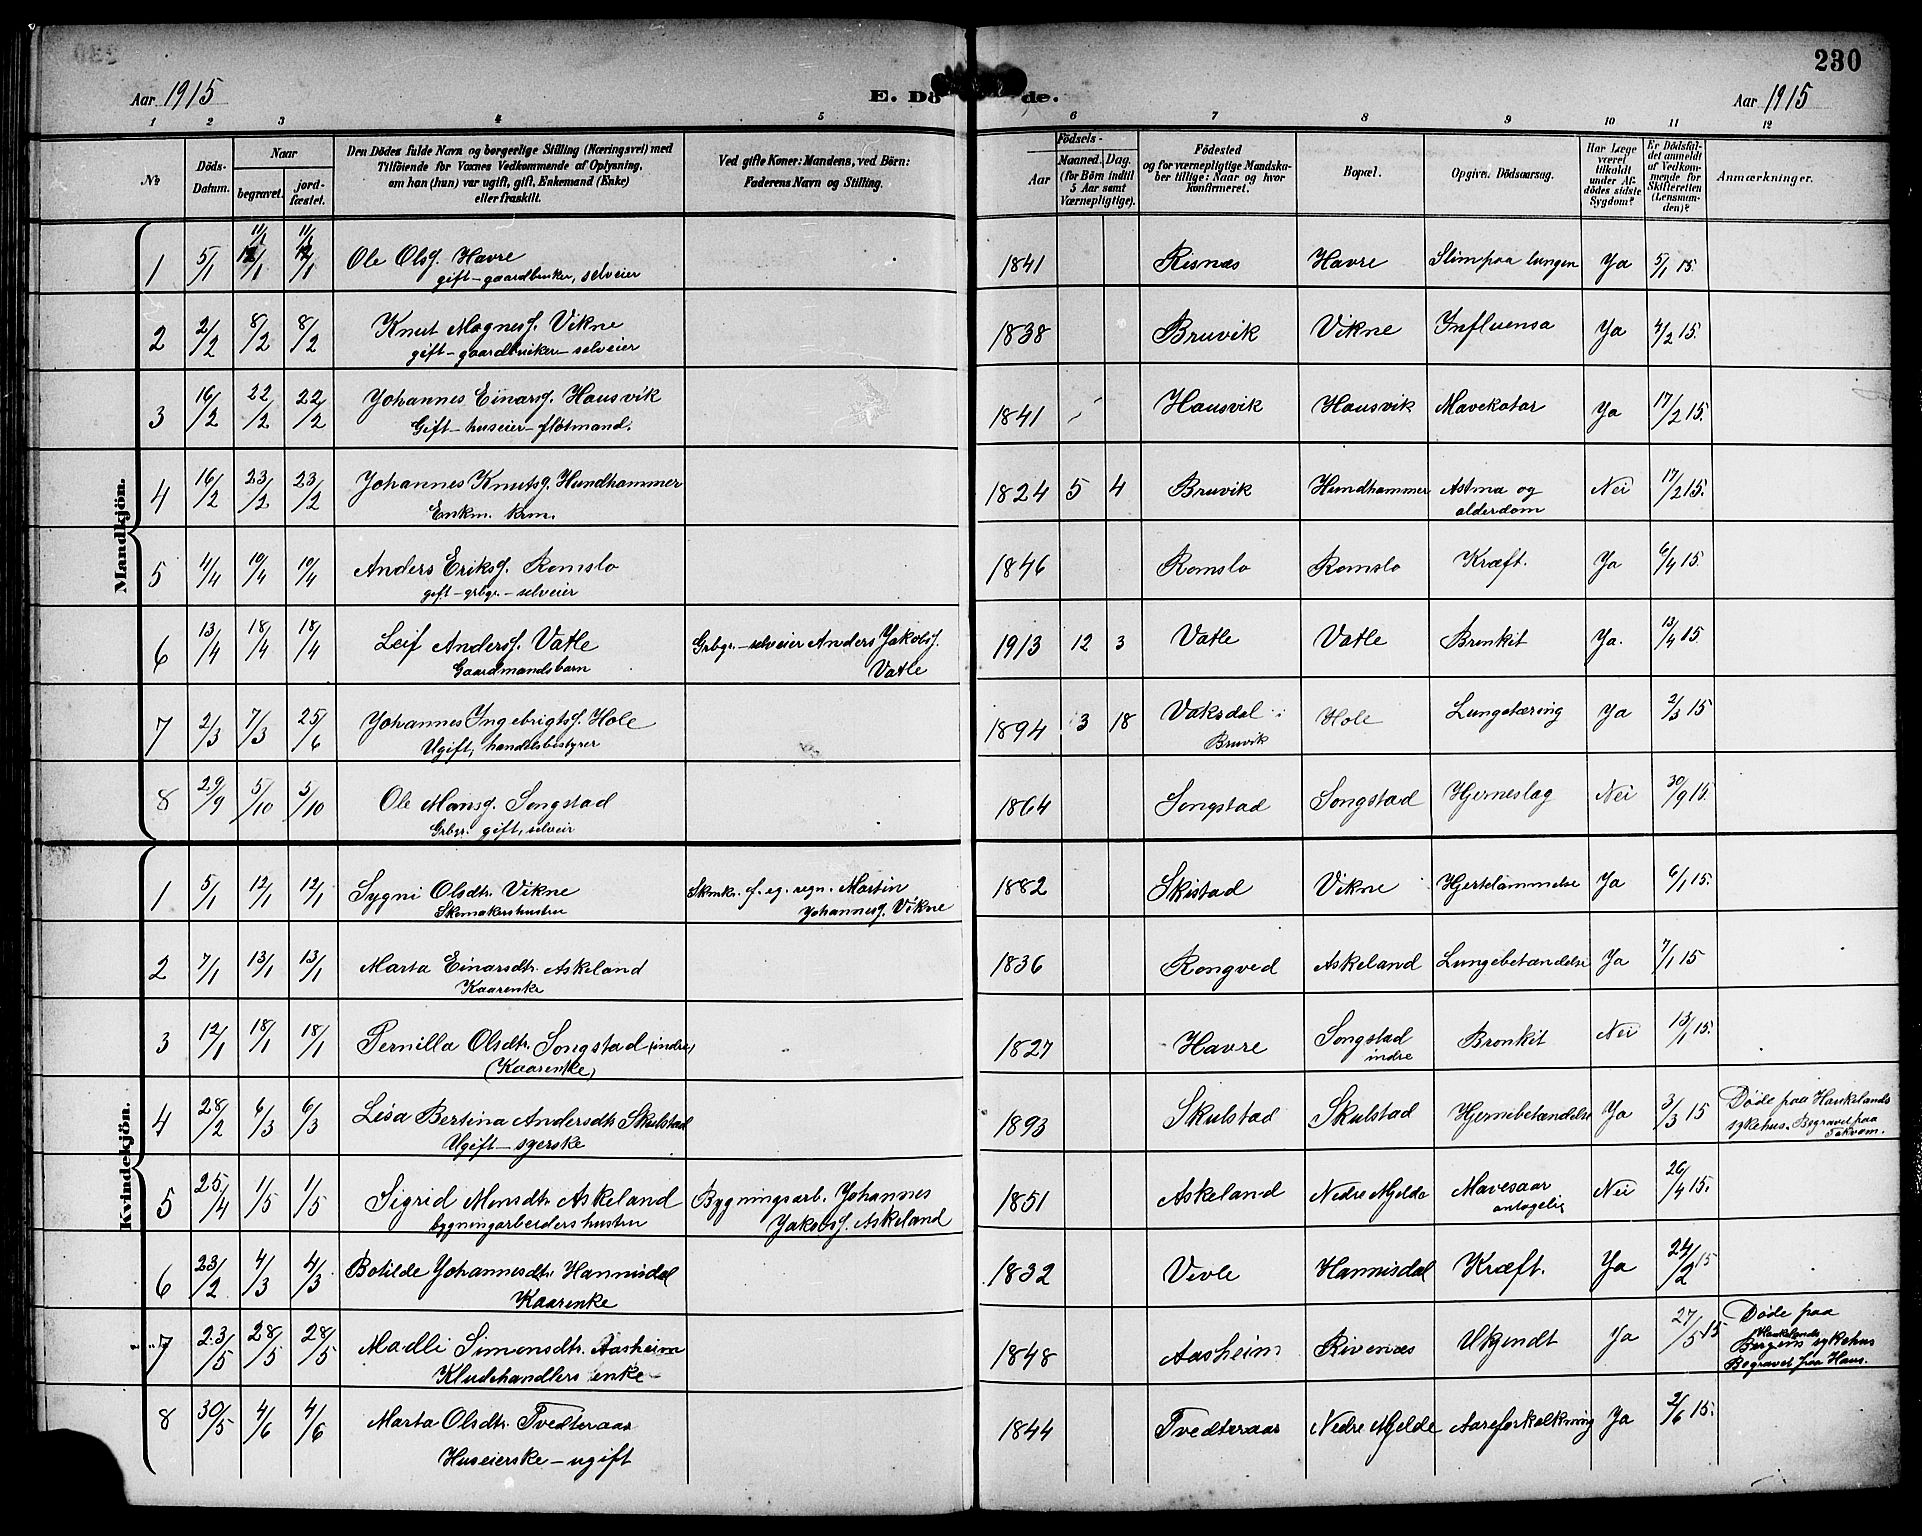 230
Aar 1915
E. Dö de.
Aar 1915
1 2 3 4 5 6 7 8 9 10 11 12
No
Döds-Datum.
Naar
begravet.
jord-fæstet.
Den Dödes fulde Navn og borgerlige Stilling (Næringsvei) med
Tilföiende for Voxnes Vedkommende af Oplysning,
om han (hun) var ugift, gift, Enkemand (Enke)
eller fraskilt.
Ved gifte Koner: Mandens, ved Börn:
Faderens Navn og Stilling.
Födsels-
Aar
Maaned. Dag.
(for Börn indtil
5 Aar samt
Værnepligtige).
Födested
og for værnepligtige Mandska-
ber tillige: Naar og hvor
konfirmeret.
Bopæl.
Opgiven Dödsaarsag.
Har Læge
været
tilkaldt
under Af-
dödes sidste
Sygdom?
Er Dödsfal-
det anmeldt
af Vedkom-
mende for
Skifteretten
(Lensman-
den)?
Anmærkninger.
Mandkjön.
1 5/1 11/1 11/1 Ole Olsf. Havre 1841 Risnæs Havre Slim paa lungen Ya 5/1 15.
gift - gaardbruker, selveier
2 2/2 8/2 8/2 Knut Magnesf. Vikne 1838 Bruvik Vikne Influensa Ya 4/2 15.
gift - gaardbruker - selveier
3 16/2 22/2 22/2 Johannes Einarsf. Hausvik 1841 Hausvik Hausvik Mavekatar Ya 17/2 15.
Gift - huseier - flotmand.
4 16/2 23/2 23/2 Johannes Knutsf. Hundhammer 1824 5 4 Bruvik Hundhammer Astma og Nei 17/2 15.
Enkm. krm. alderdom
5 4/4 10/4 10/4 Anders Eriksf. Romslo 1846 Romslo Romslo Kræft. Ya 6/4 15.
gift - grbgr. - selveier
6 13/4 18/4 18/4 Leif Andersf. Vatle Grbgr. - selveier Anders Jakobsf. 1913 12 3 Vatle Vatle Bronkit Ya. 13/4 15
Gaardmandsbarn Vatle
7 2/3 7/3 25/6 Johannes Ingebrigtsf. Hole 1894 3 18 Vaksdal i Hole Lungetæring Ya 2/3 15
Ugift, handelsbestyrer Bruvik
8 29/9 5/10 5/10 Ole Monsf. Songstad 1864 Songstad Songstad Hjerneslag Nei 30/9 15.
Grbgr. gift, selveir
Kvindekjön.
1 5/1 12/1 12/1 Sygni Olsdtr. Vikne Skmkr. f. eg. regn. Martin 1882 Skistad Vikne Hjertelammelse Ya 6/1 15.
Skomakerhustru Johannesf. Vikne
2 7/1 13/1 13/1 Marta Einarsdtr. Askeland 1836 Rongved Askeland Lungebetændelse Ya 7/1 15
Kaarenke
3 12/1 18/1 18/1 Pernilla Olsdtr. Songstad (indre) 1827 Havre Songstad Bronkit Nei 13/1 15.
(Kaarenke) indre
4 28/2 6/3 6/3 Lisa Bertina Andersdtr. Skulstad 1893 Skulstad Skulstad Hjernebetændelse Ya 3/3 15 Døde paa Haukelands
Ugift - syerske sykehus. Begravet paa
Takvam.
5 25/4 1/5 1/5 Sigrid Monsdtr. Askeland Bygningsarb. Johannes 1851 Askeland Nedre Mjelde Mavesaar Nei 26/4 15.
bygningarbeiders hustru Jakobsf. Askeland antagelig
6 23/2 4/3 4/3 Botilde Johannesdtr. Hannisdal 1832 Vevle Hannisdal Kræft. Ya 24/2 15
Kaarenke
7 23/5 28/5 28/5 Madli Simonsdtr. Aasheim 1848 Aasheim Rivenæs Ukjendt Ya 27/5 15 Døde paa
Haukelands
Kludehandlers enke - Bergens sykehus
Begravet paa Haus.
8 30/5 4/6 4/6 Marta Olsdtr. Tvedteraas 1844 Tvedteraas Nedre Mjelde Aareforkalkning Ya 2/6 15.
Huseierske - ugift